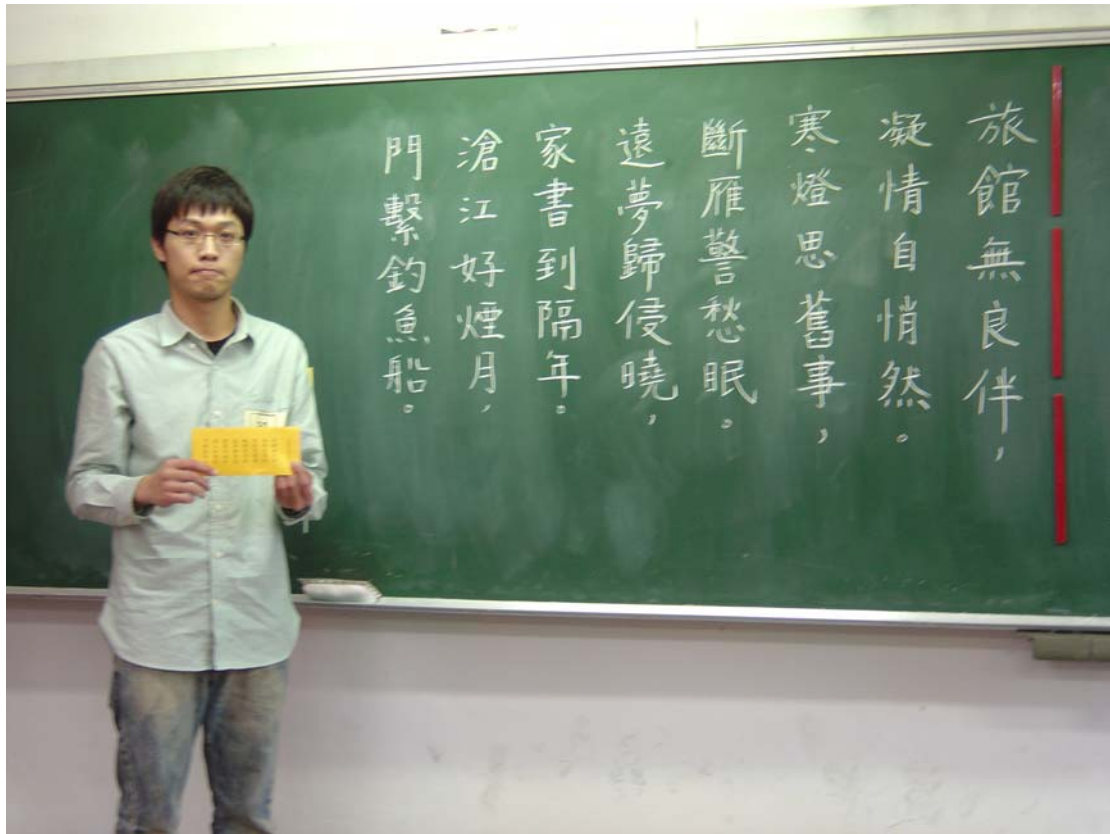 旅館無良伴，
凝情自悄然。
寒燈思舊事，
斷雁警愁眠。
遠夢歸侵曉，
家書到隔年。
滄江好煙月，
門繫釣魚船。